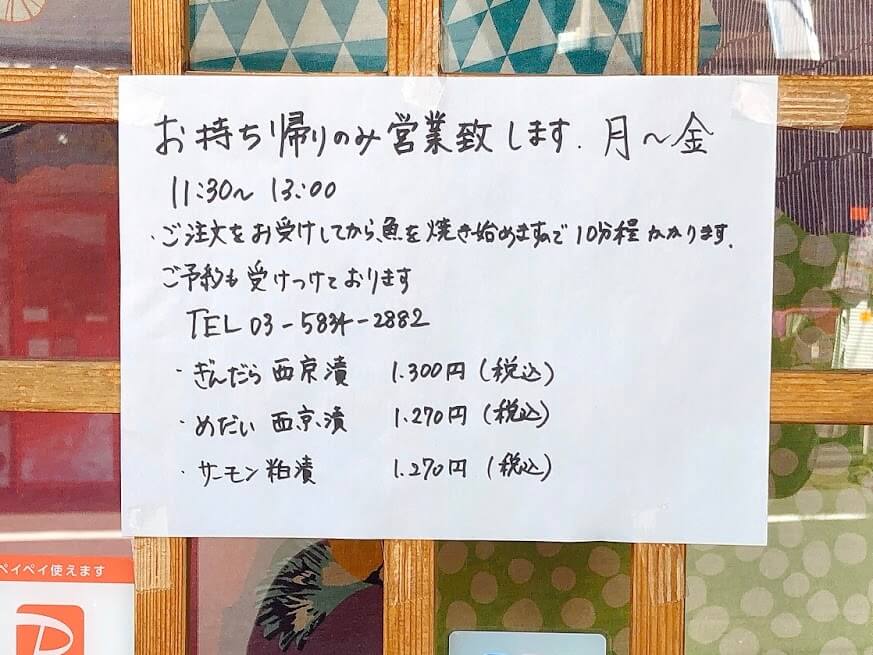 お持ち帰りのみ営業致します. 月〜金
11:30〜 13:00
・ご注文をお受けしてから、魚を焼き始めますので10分程かかります.
ご予約も受けつけております
TEL 03-5834-2882
・ぎんだら 西京漬 1.300円(税込)
・めだい 西京漬 1.270円(税込)
・サーモン粕漬 1.270円(税込)
ペイペイ使えます